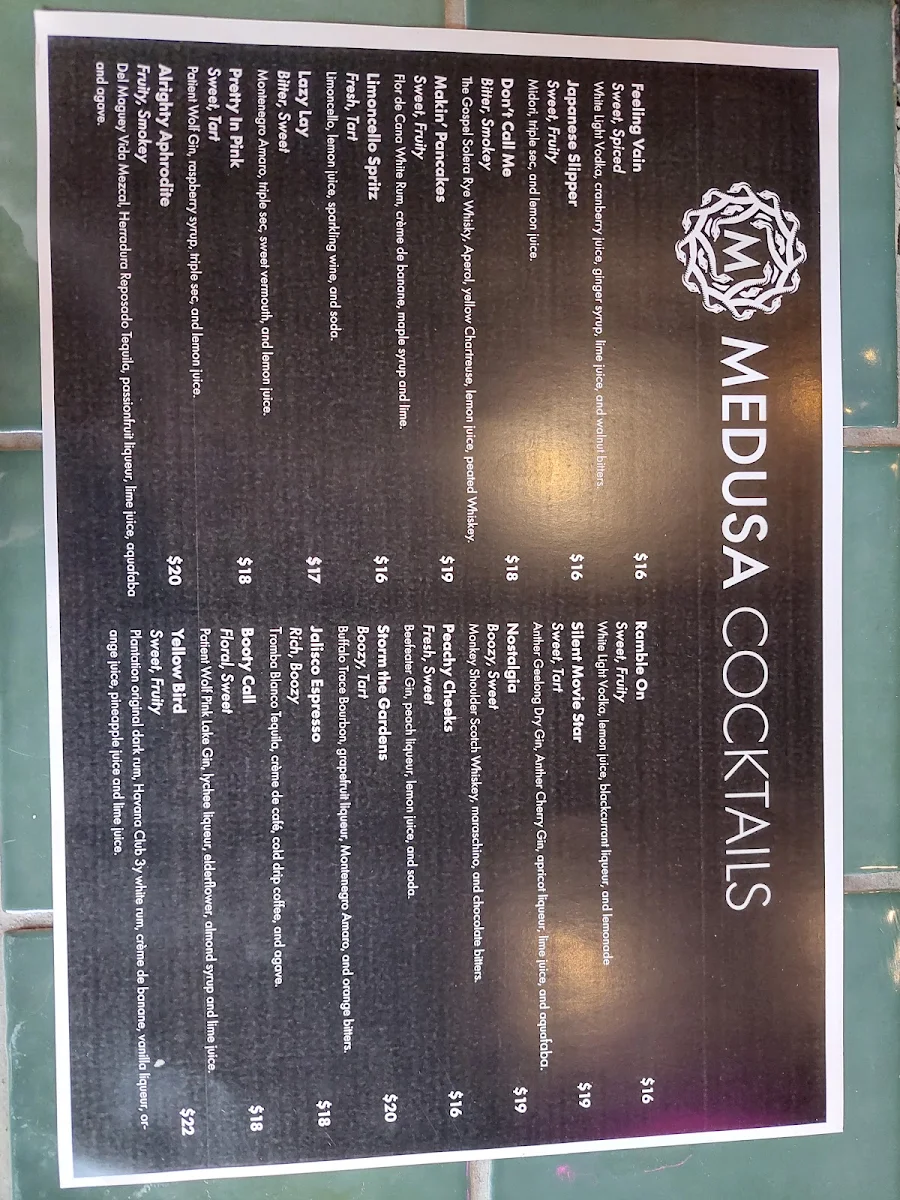 M MEDUSA COCKTAILS
Feeling Vain $16
Sweet, Spiced
White Light Vodka, cranberry juice, ginger syrup, lime juice, and walnut bitters.
Japanese Slipper $16
Sweet, Fruity
Midori, triple sec, and lemon juice.
Don't Call Me $18
Bitter, Smokey
The Gospel Solera Rye Whisky, Aperol, yellow Chartreuse, lemon juice, peated Whiskey.
Makin' Pancakes $19
Sweet, Fruity
Flor de Cana White Rum, crème de banane, maple syrup and lime.
Limoncello Spritz $16
Fresh, Tart
Limoncello, lemon juice, sparkling wine, and soda.
Lazy Lay $17
Bitter, Sweet
Montenegro Amaro, triple sec, sweet vermouth, and lemon juice.
Pretty In Pink $18
Sweet, Tart
Patient Wolf Gin, raspberry syrup, triple sec, and lemon juice.
Alrighty Aphrodite $20
Fruity, Smokey
Del Maguey Vida Mezcal, Herradura Reposado Tequila, passionfruit liqueur, lime juice, aquafaba
and agave.
Ramble On $16
Sweet, Fruity
White Light Vodka, lemon juice, blackcurrant liqueur, and lemonade
Silent Movie Star $19
Sweet, Tart
Anther Geelong Dry Gin, Anther Cherry Gin, apricot liqueur, lime juice, and aquafaba.
Nostalgia $19
Boozy, Sweet
Monkey Shoulder Scotch Whiskey, maraschino, and chocolate bitters.
Peachy Cheeks $16
Fresh, Sweet
Beefeater Gin, peach liqueur, lemon juice, and soda.
Storm the Gardens $20
Boozy, Tart
Buffalo Trace Bourbon, grapefruit liqueur, Montenegro Amaro, and orange bitters.
Jalisco Espresso $18
Rich, Boozy
Tromba Blanco Tequila, crème de café, cold drip coffee, and agave.
Booty Call $18
Floral, Sweet
Patient Wolf Pink Lake Gin, lychee liqueur, elderflower, almond syrup and lime juice.
Yellow Bird $22
Sweet, Fruity
Plantation original dark rum, Havana Club 3y white rum, crème de banane, vanilla liqueur, or-
ange juice, pineapple juice and lime juice.